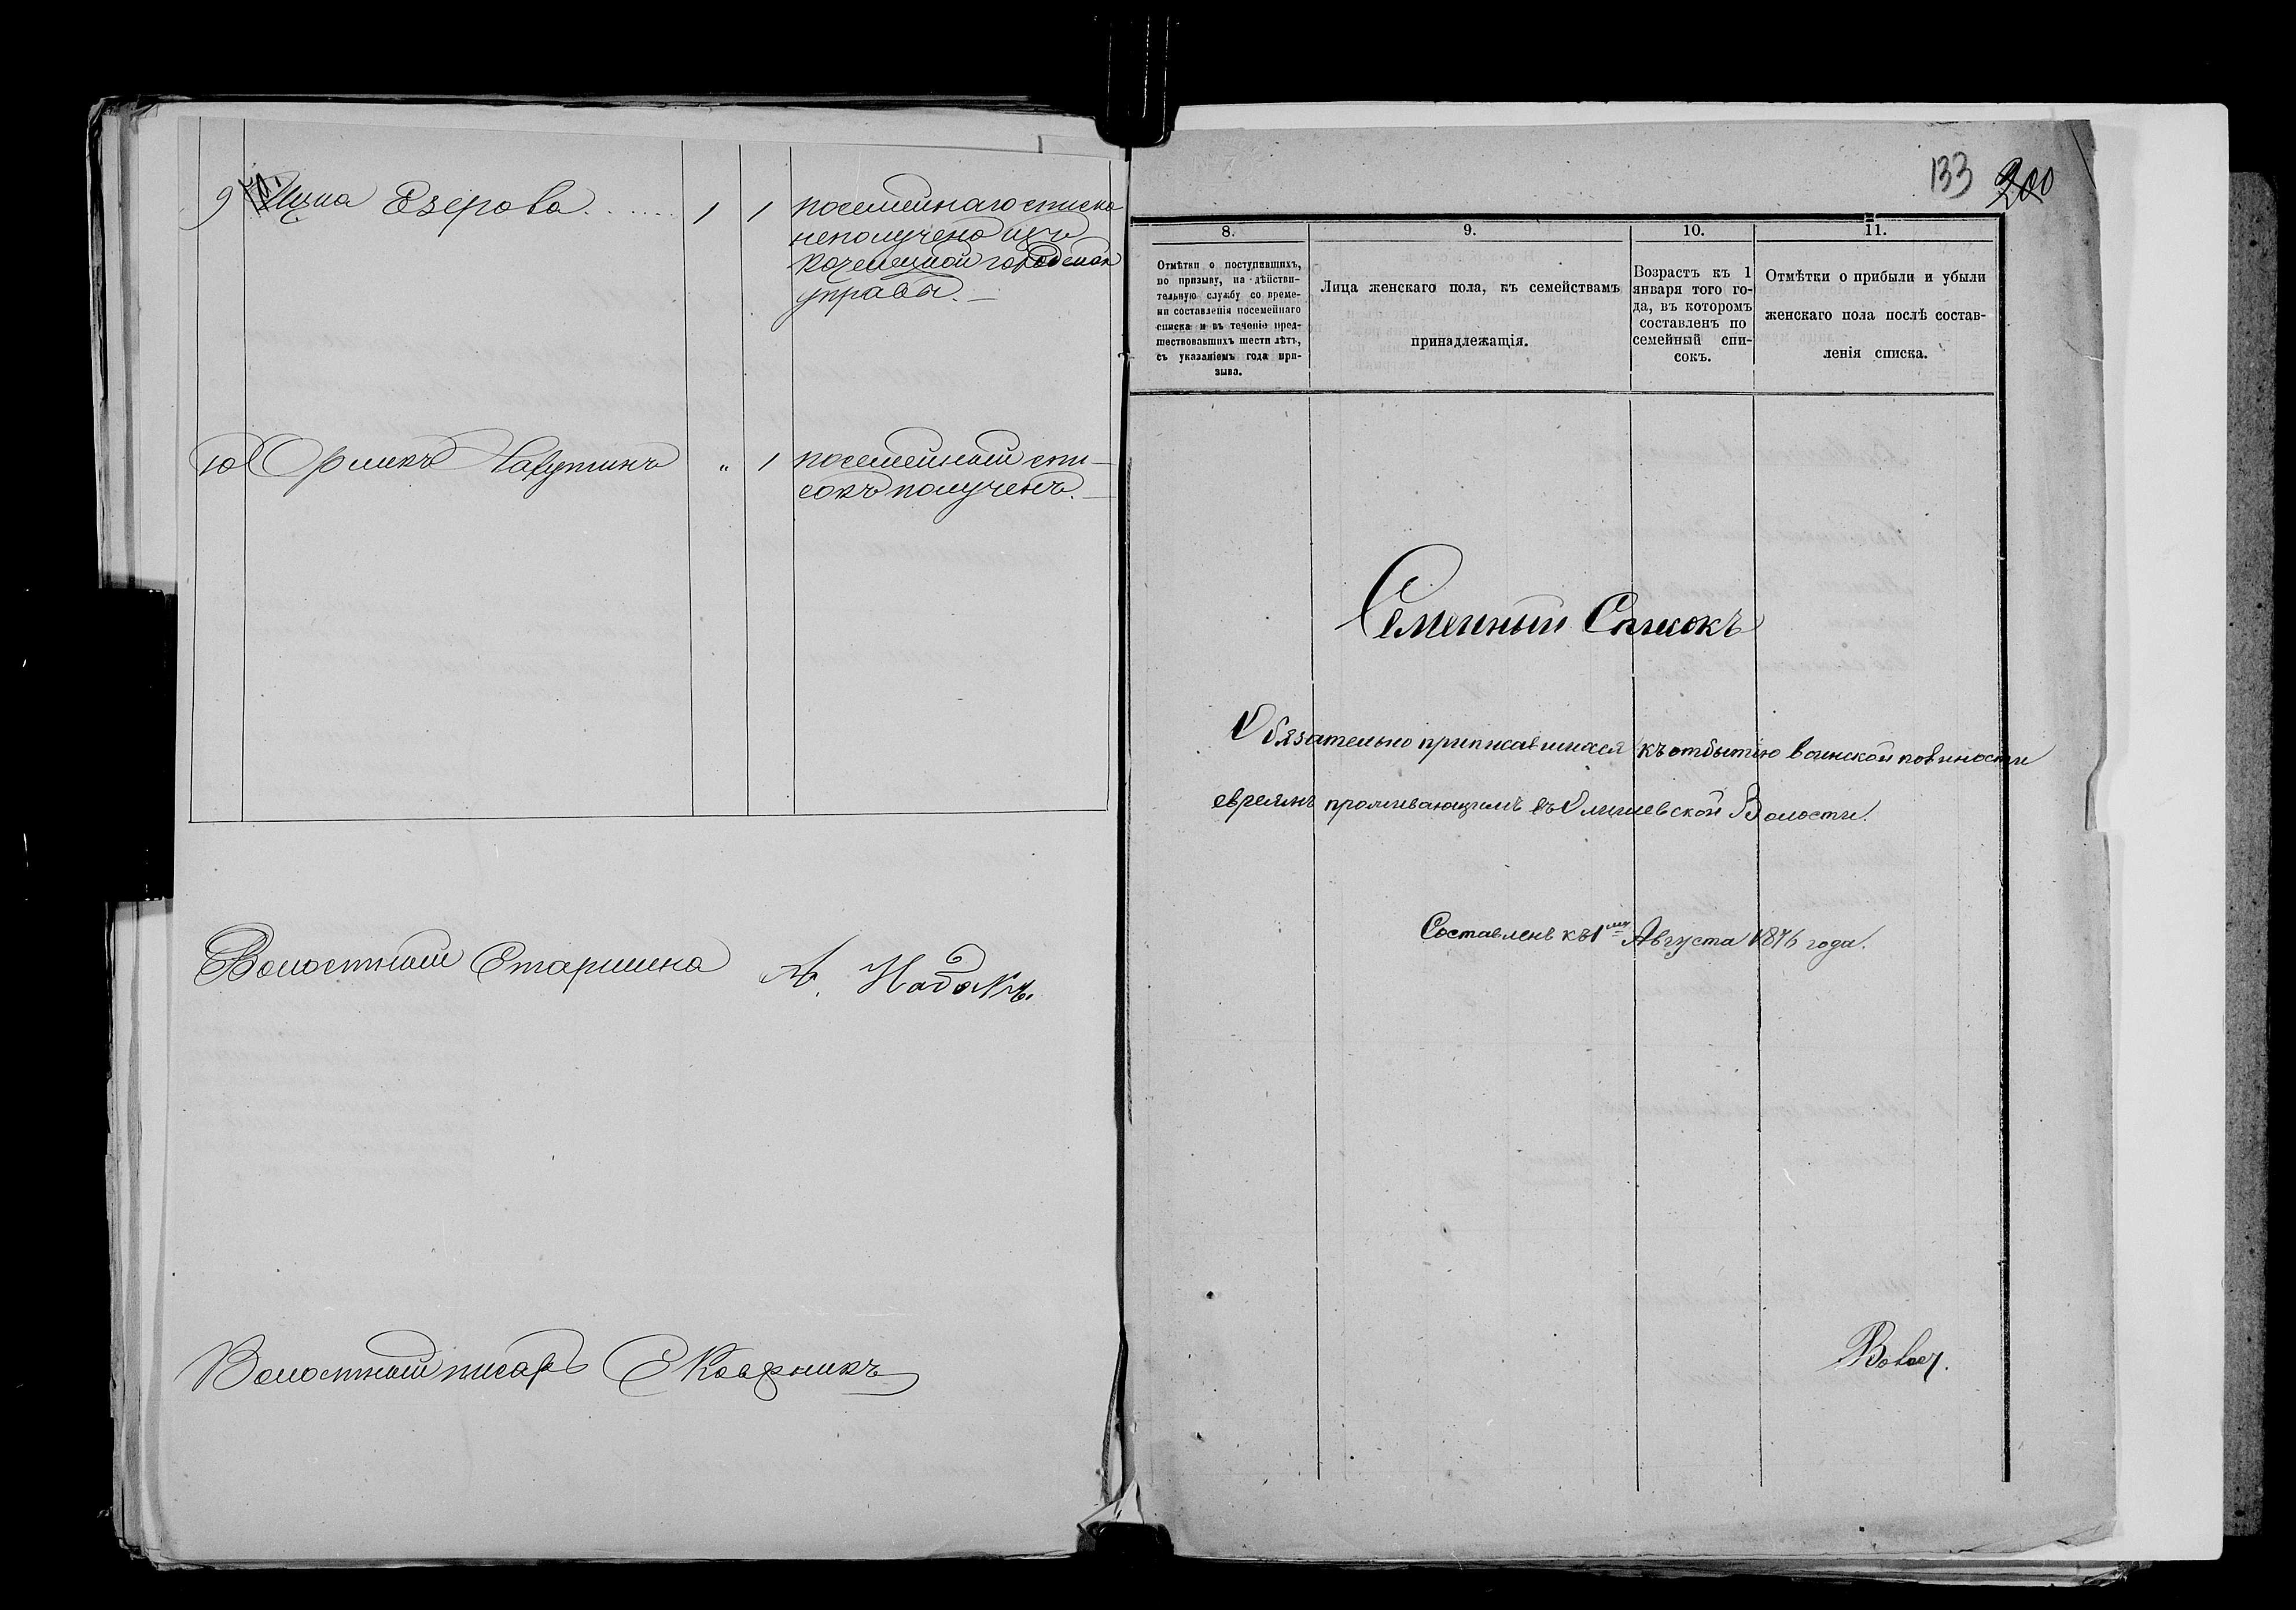 9 Ицка Езерова . . . . . . 1 1 посемейнаго списка
неполучено изъ
городской
управы. —
10 1 посемейный спи-
сокъ полученъ. —
Волостный Старшина А. Набокъ.
Волостный писарь
133 200
8. 9. 10. 11.
Отмѣтки о поступившихъ,
по призыву, на дѣйстви-
тельную службу со време-
ни составленія посемейнаго
списка и въ теченіе пред-
шествовавшихъ шести лѣтъ,
съ указаніемъ года при-
зыва.
Лица женскаго пола, къ семействамъ
принадлежащія.
Возрастъ къ 1
января того го-
да, въ которомъ
составленъ по
семейный спи-
сокъ.
Отмѣтки о прибыли и убыли
женскаго пола послѣ состав-
ленія списка.
Семейный Списокъ
Обязательно приписавшихся къ отбытію воинской повиности
евреямъ проживающимъ въ Олишевской Волости.
Составленъ къ 1му Августа 1876 года.